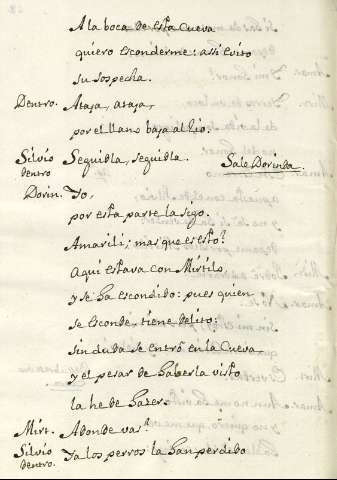 A la boca de esta Cueva
quiero esconderme: assi evito
su sospecha.
Dentro. Ataja, ataja,
por el llano baja al Rio.
Silvio dentro Seguidla, seguidla. Sale Dorinda
Dorin. Yo,
por esta parte la sigo.
Amarili; mas que es esto?
Aqui estava con Mirtilo,
y se ha escondido: pues quien
se esconde, tiene delito;
sin duda se entrò en la Cueva,
y el pesar de haberla visto
la he de hazer.
Mirt. A donde vas?
Silvio dentro. Ya los perros la han perdido